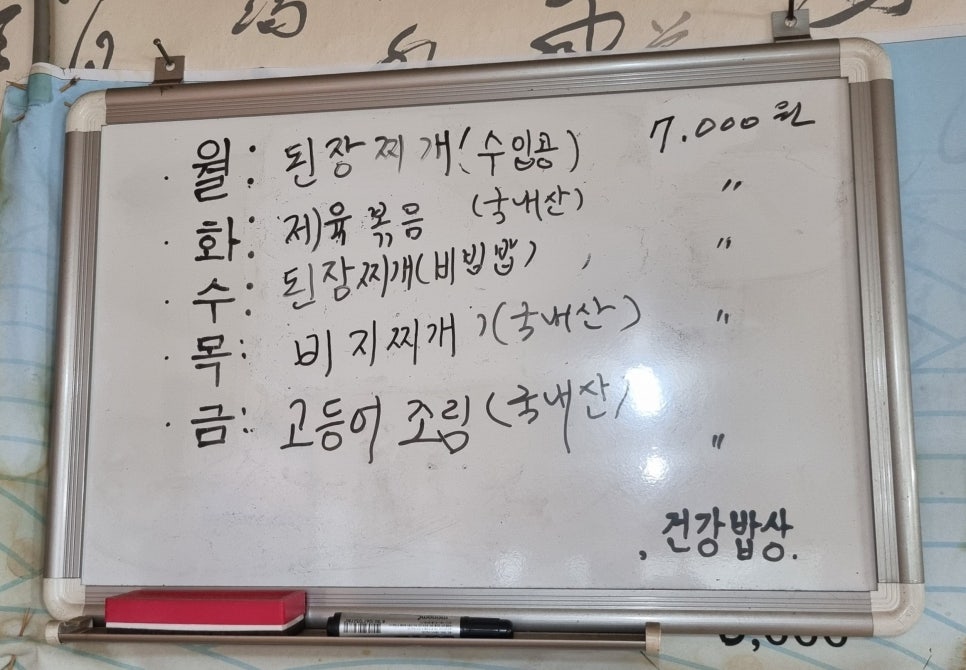 · 월: 된장찌개(수입콩) 7.000원
· 화: 제육볶음 (국내산) 〃
· 수: 된장찌개(비빔밥) 〃
· 목: 비지찌개 (국내산) 〃
· 금: 고등어 조림 (국내산) 〃
건강밥상.